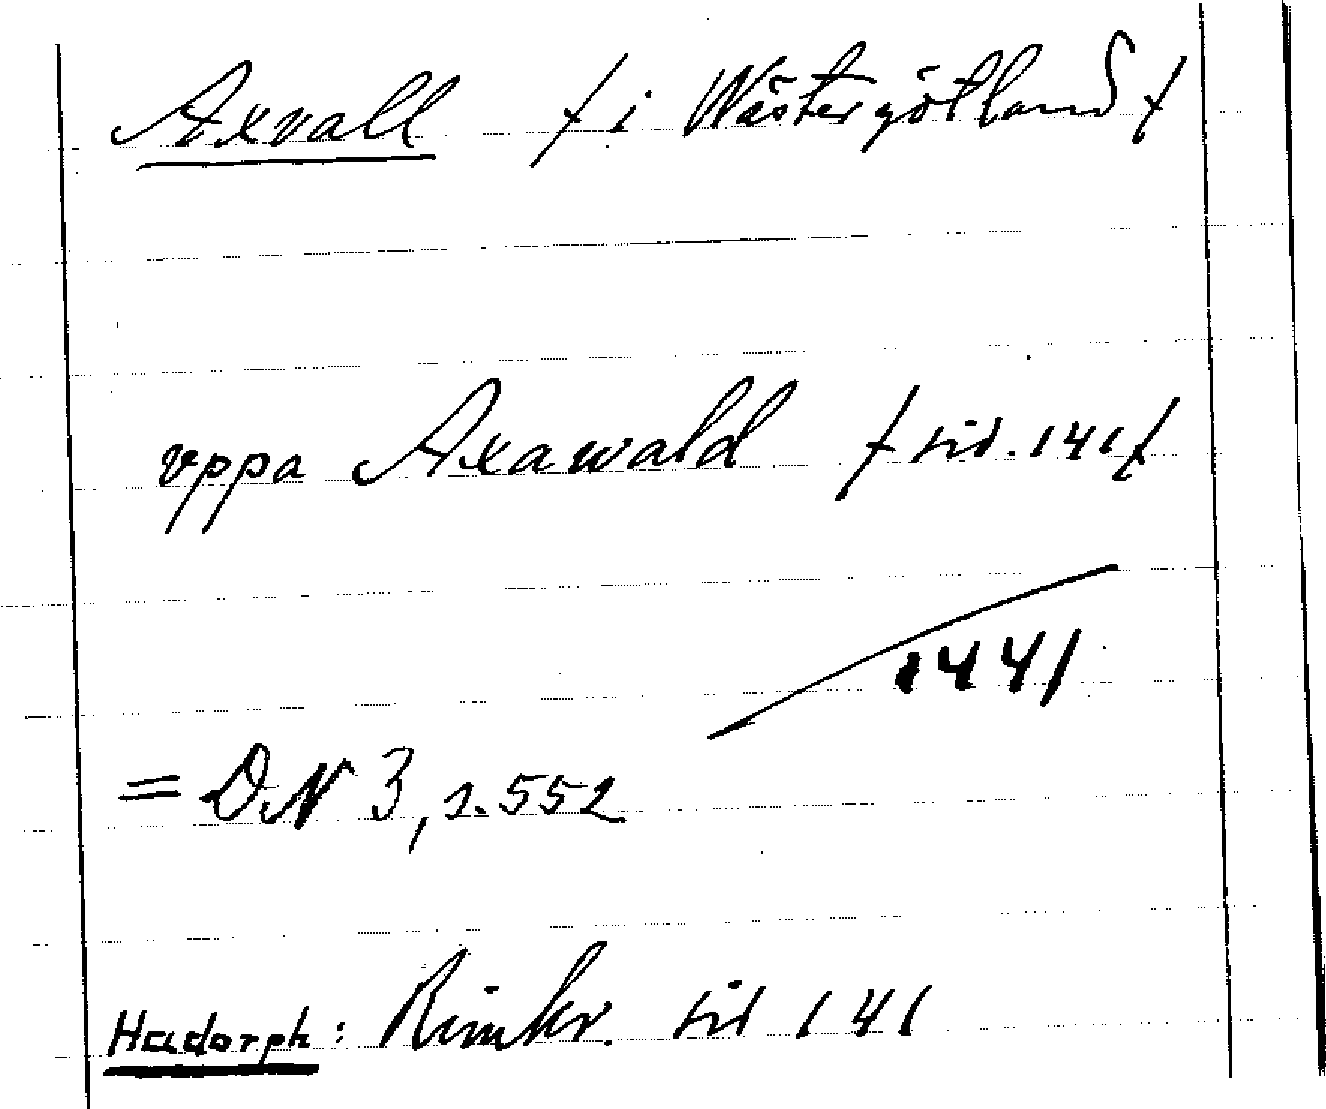 Axvall / i Wästergötland /
vppa Axawald / sid. 141 /
1441
= DN 3, s. 552
Hadorph: Rimkr. sid 141